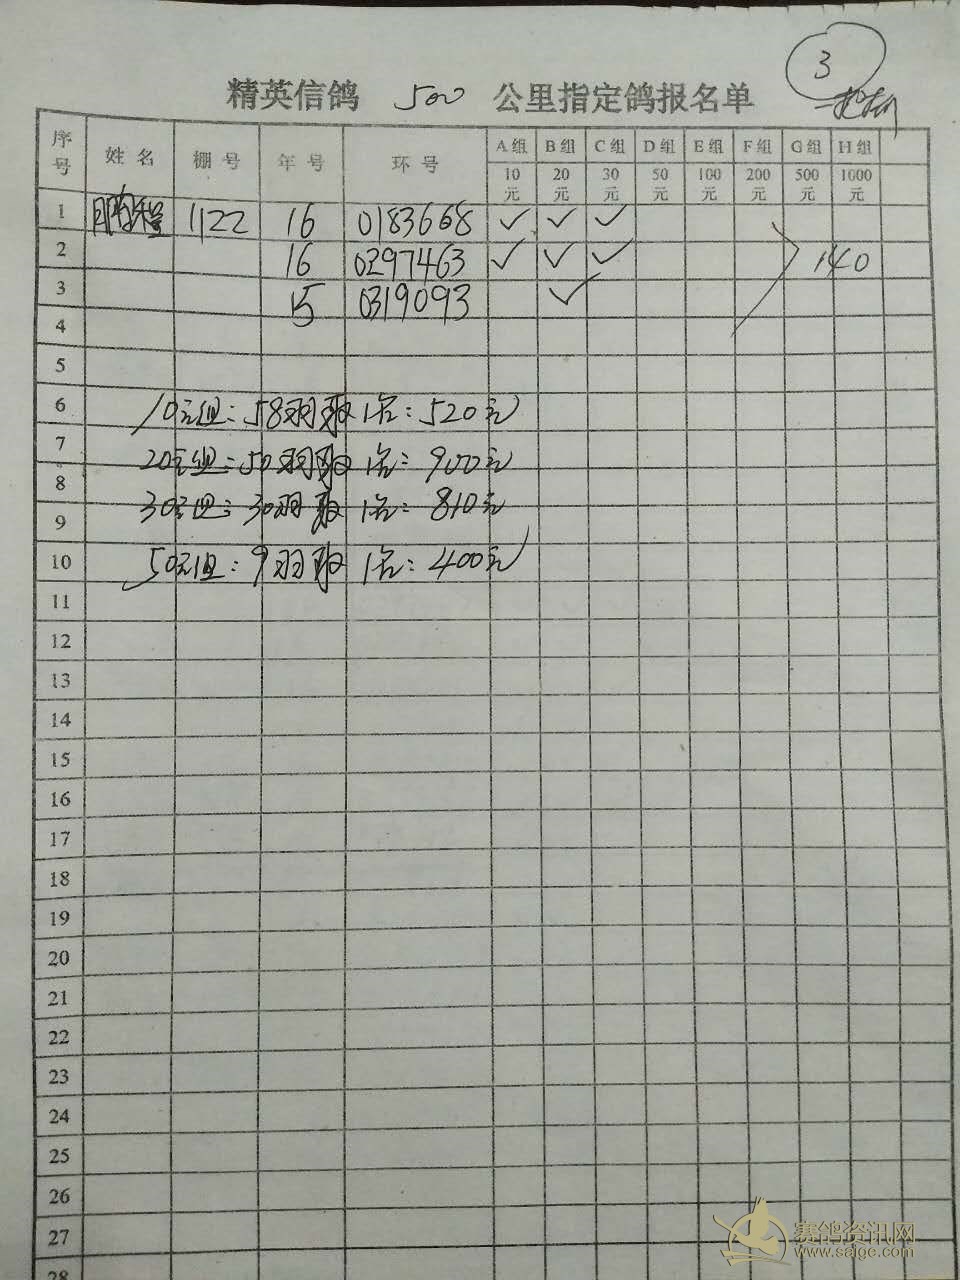 3
精英信鸽 500 公里指定鸽报名单
序号 姓名 棚号 年号 环号 A组 B组 C组 D组 E组 F组 G组 H组
10元 20元 30元 50元 100元 200元 500元 1000元
1 1122 16 0183668 ✓ ✓ ✓
2 16 0297463 ✓ ✓ ✓ 140
3 15 0319093 ✓
4
5
6 10元组:58羽取1名:520元
7 20元组:50羽取1名:900元
8
9 30元组:30羽取1名:810元
10 50元组:9羽取1名:400元
11
12
13
14
15
16
17
18
19
20
21
22
23
24
25
26
27
28
赛鸽资讯网
www.saige.com